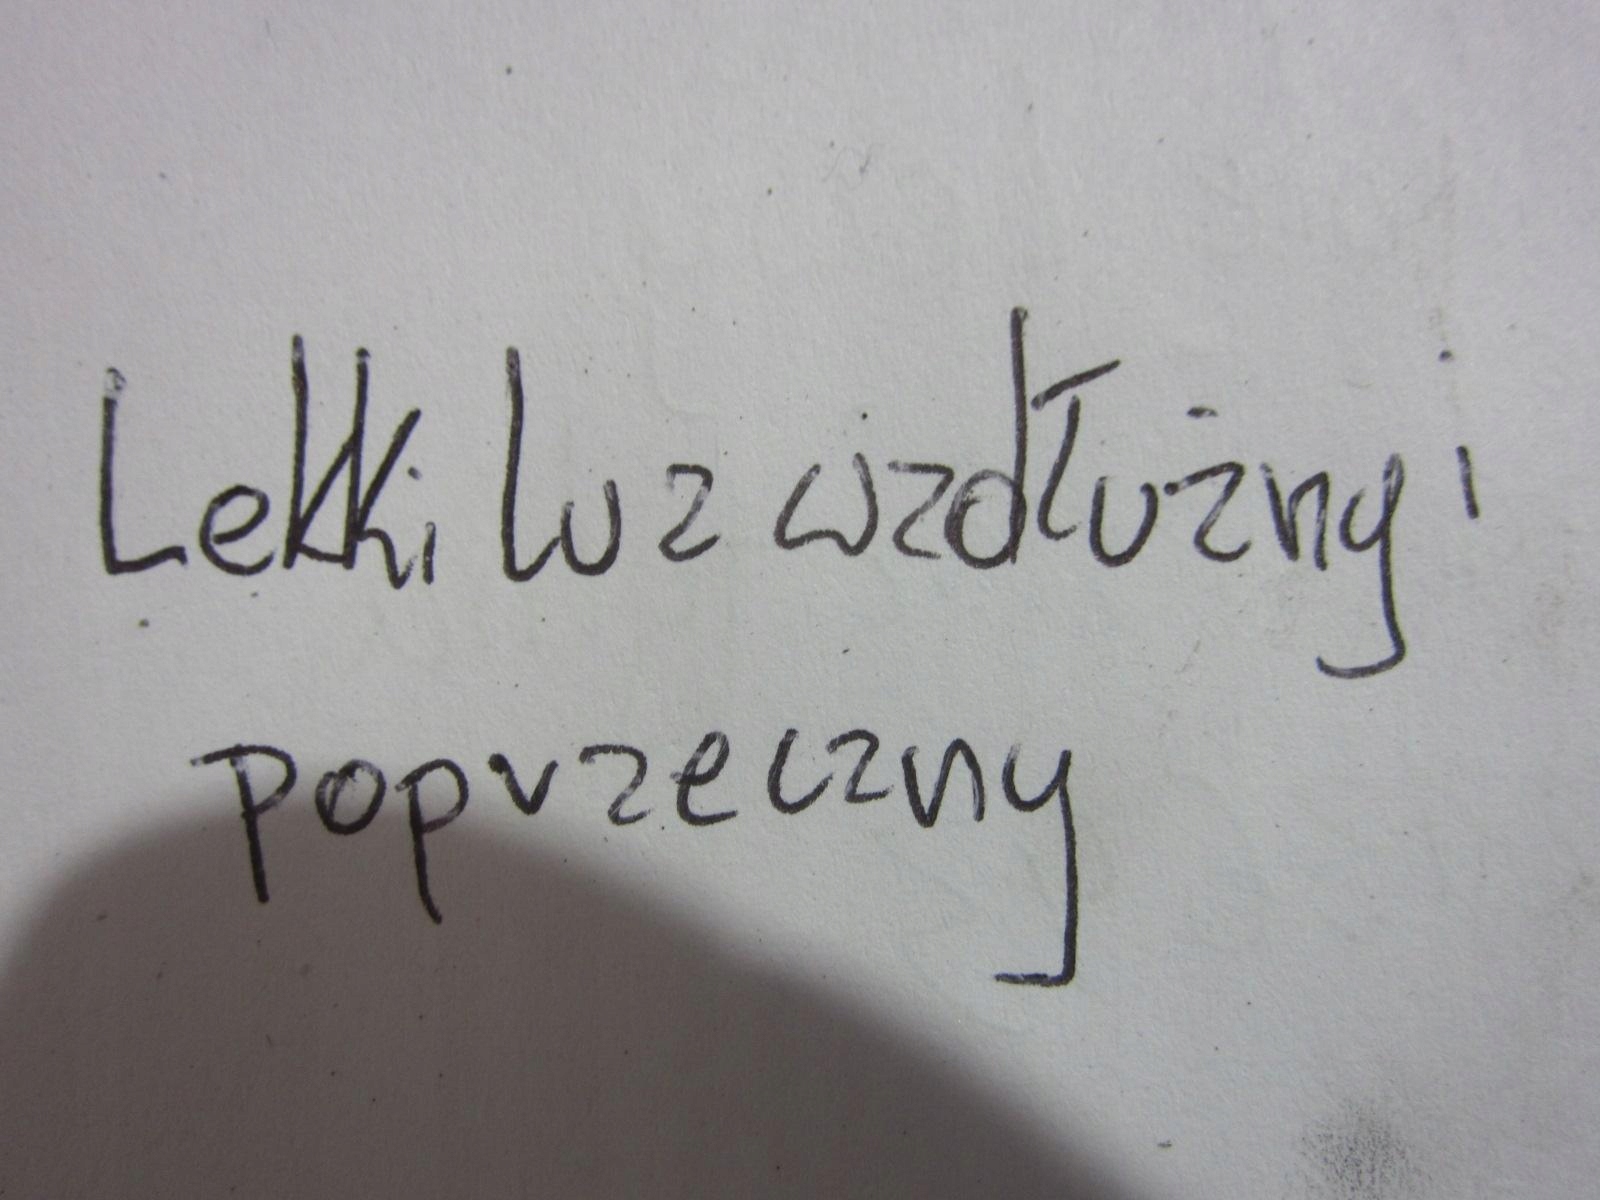 Lekki luz wzdłużny i
poprzeczny